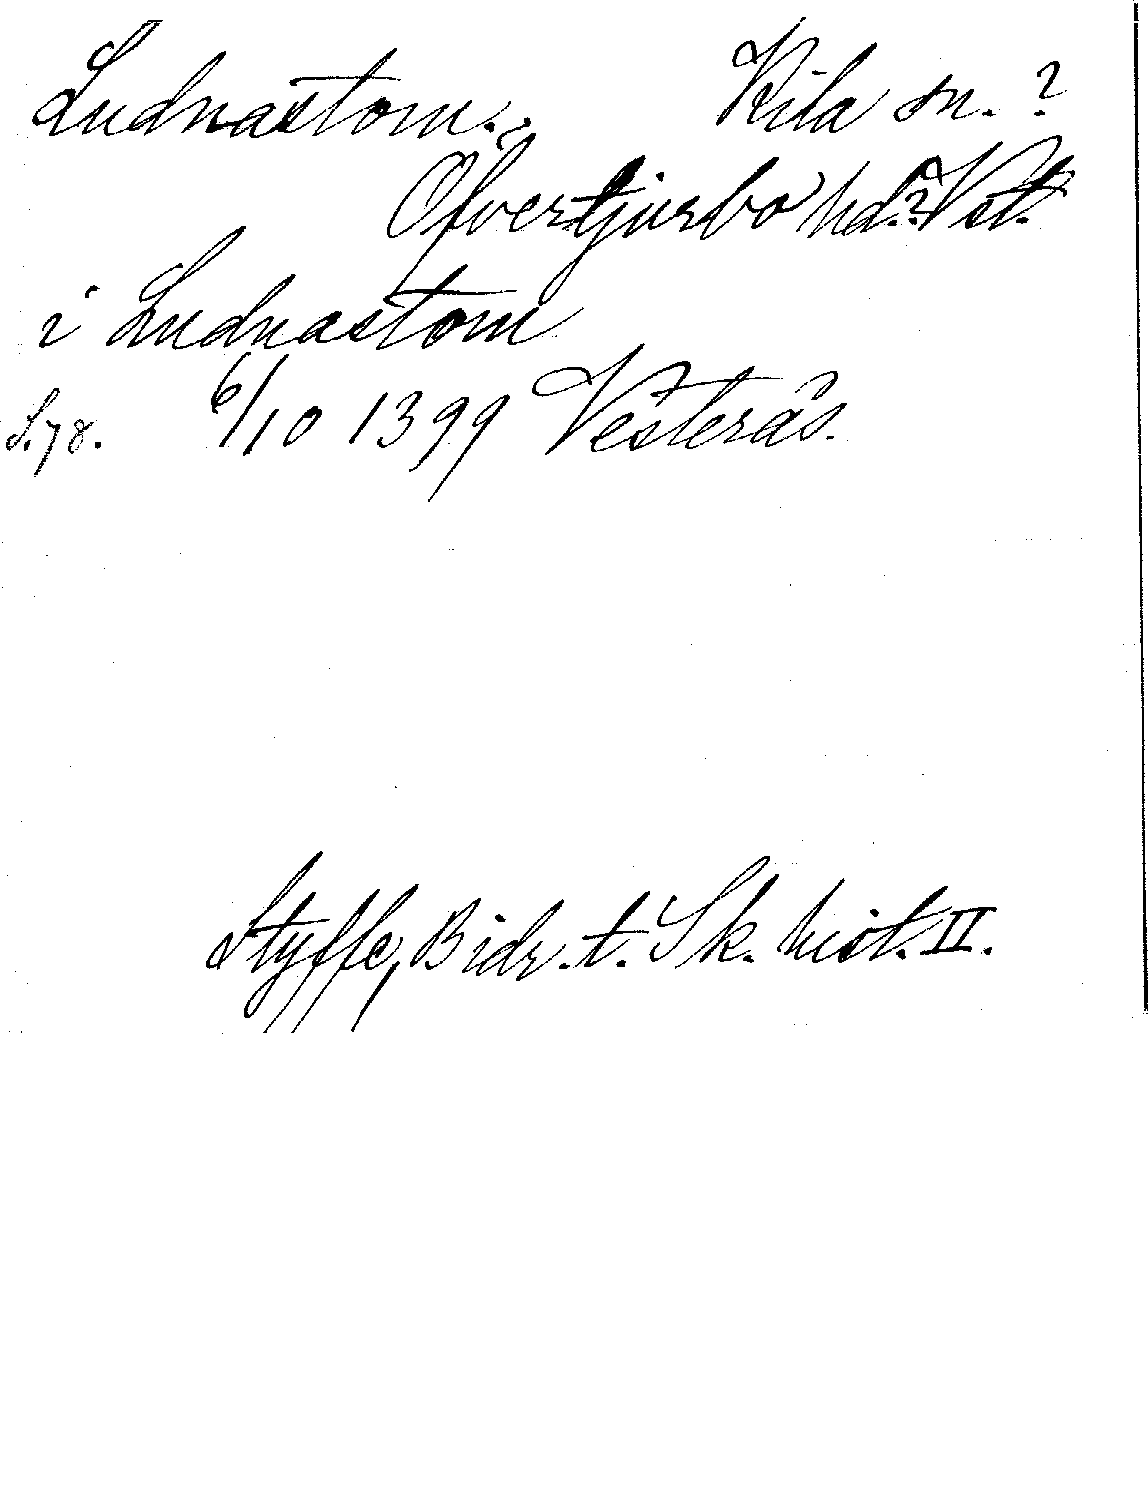 Ludnastom.? Kila sn. ?
Ofvertjurbo hd.? Vstm.
i Ludnastom
S. 78. 6/10 1399 Vesterås.
Styffe, Bidr. t. Sk. hist. II.